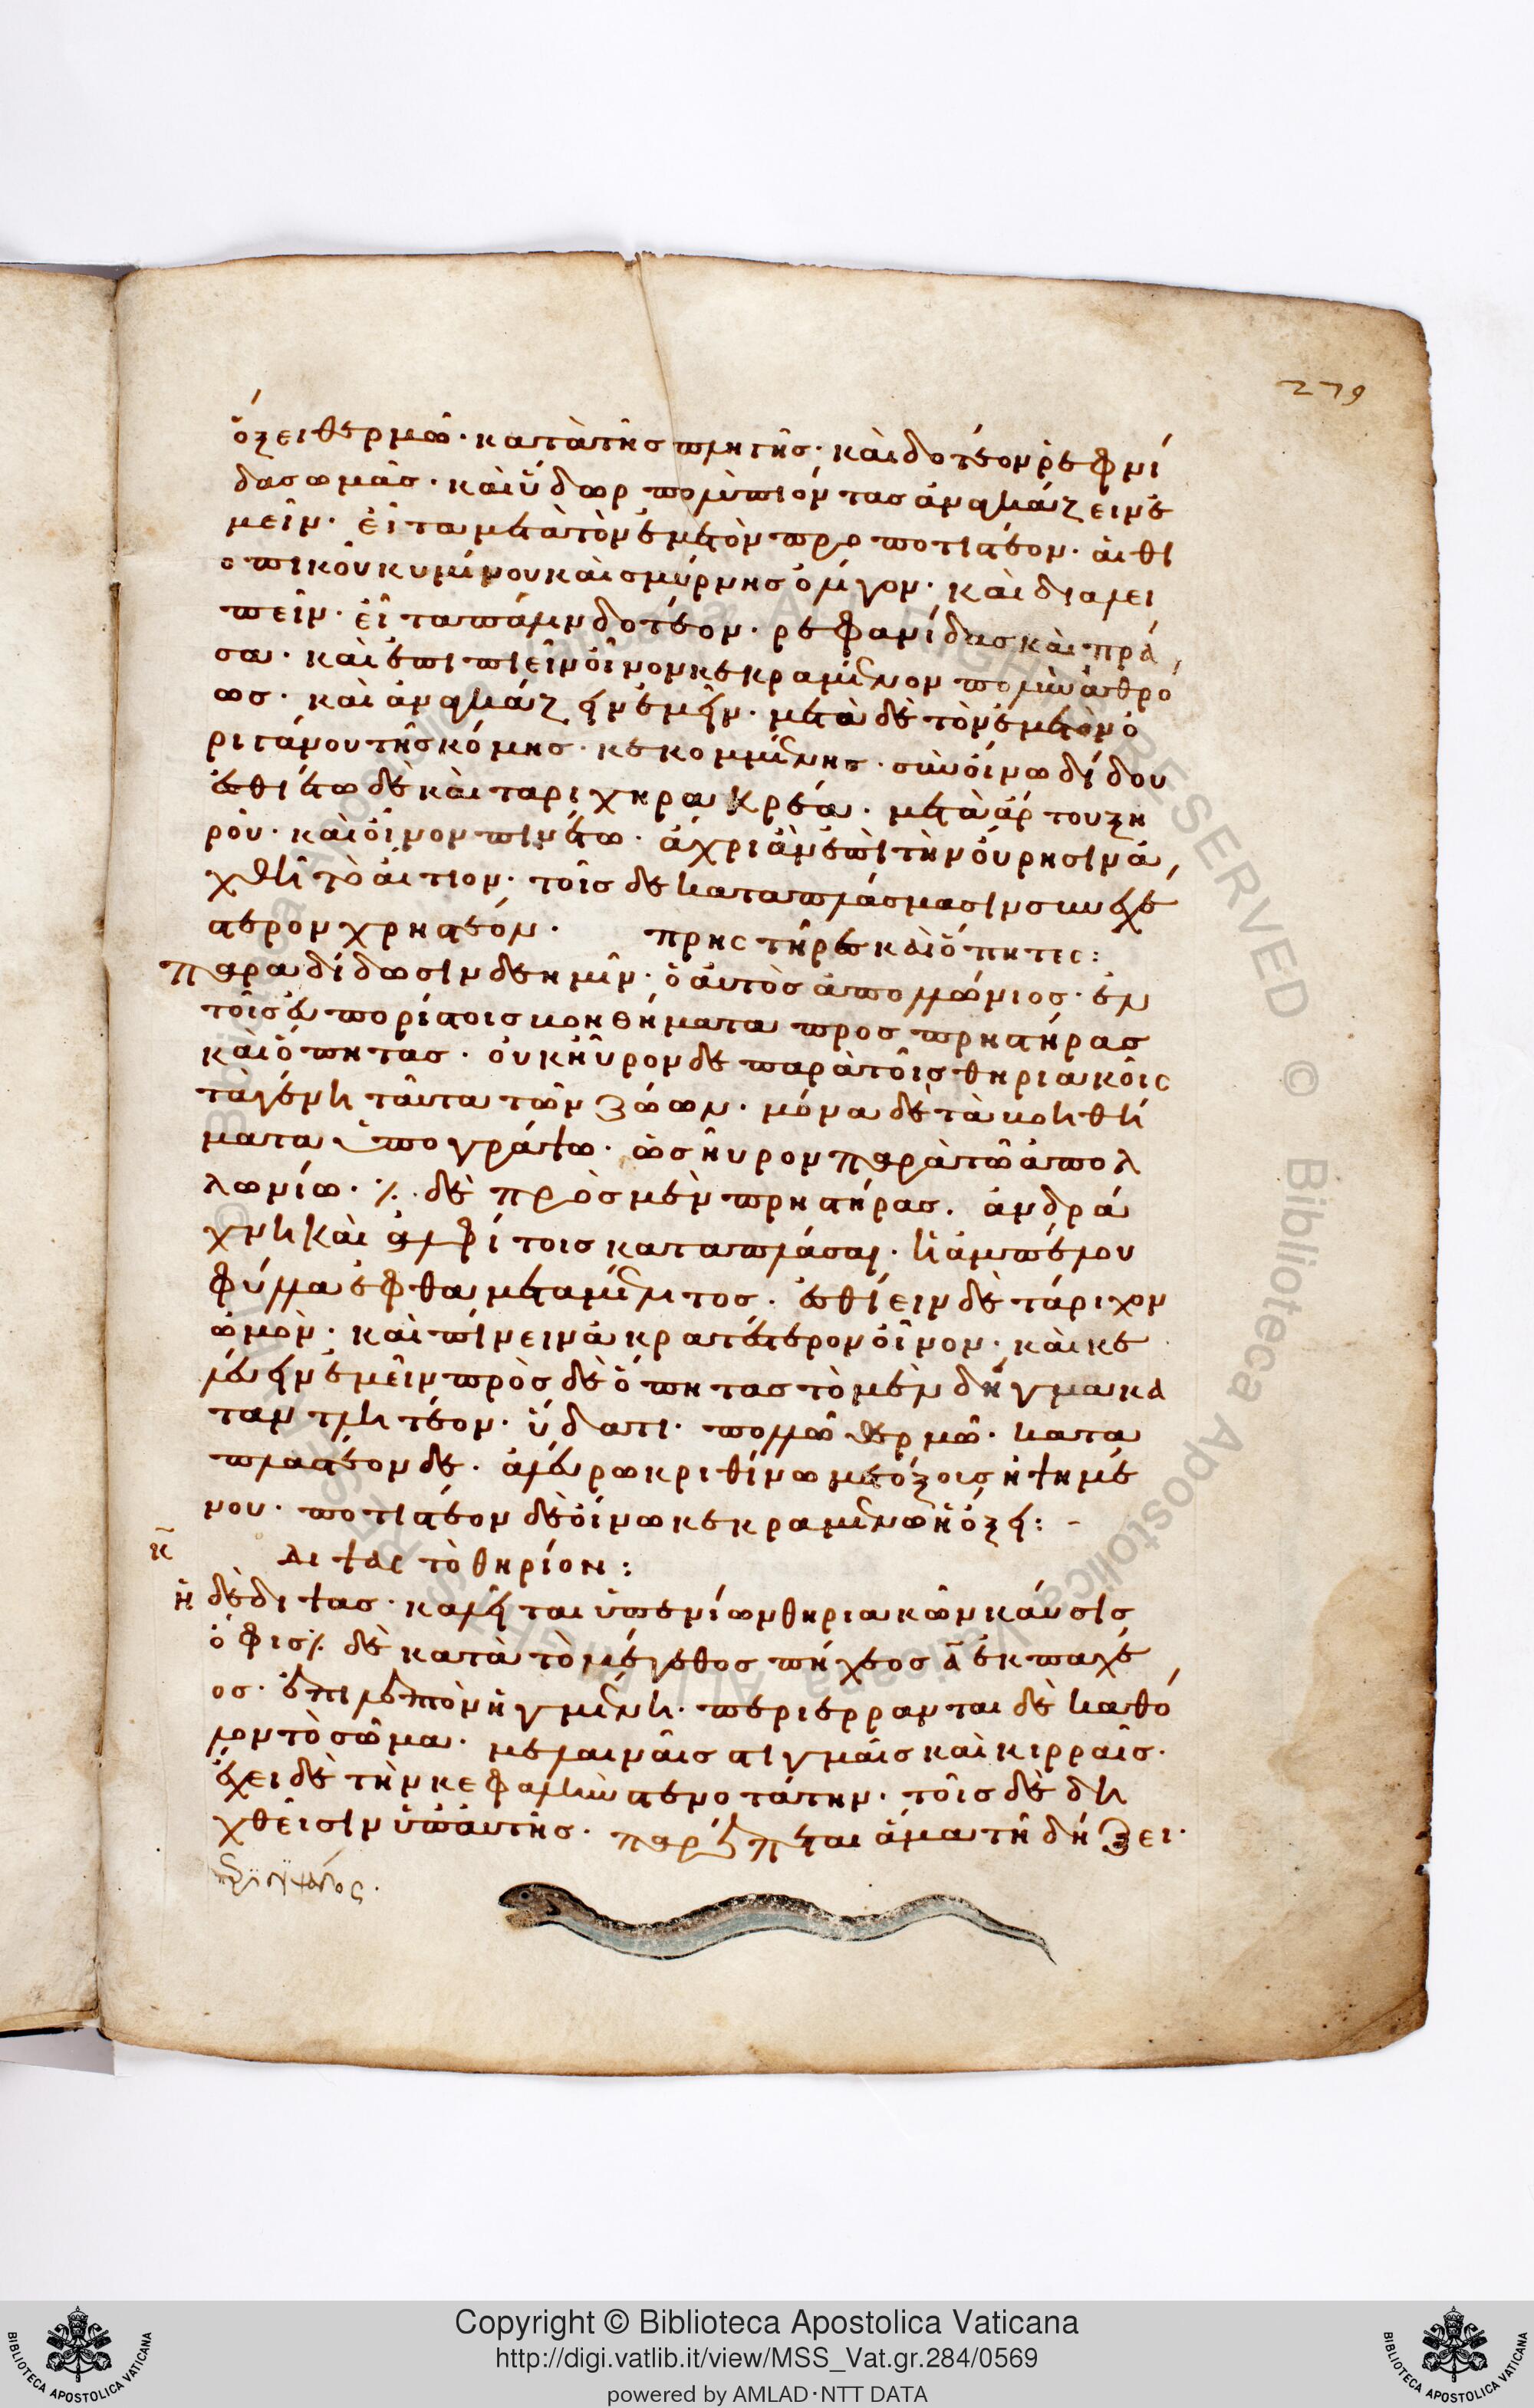 279
ὄξει θερμῶ· κατὰ τῆσ πληγῆσ· καὶ δοτέον ῥεφανί
δασ ωμὰσ· καὶ ὕδωρ πολὺ πιόντασ ἀναγκάζειν ἐ
μεῖν· εἶτα μετὰ τὸν ἐμετὸν προποτιστέον· αἰθι
οπικοῦ κυμίνου καὶ σμύρνησ ὀλίγον· καὶ διαλει
πεῖν· εἶτα πάλιν δοτέον· ρεφανίδασ καὶ πρά
σα· καὶ ἐπιπιεῖν οἶνον κεκραμένον πολὺν ἀθρό
ωσ· καὶ ἀναγκάζειν ἐμεῖν· μετὰ δὲ τὸν ἐμετὸν ὀ
ριγάνου τῆσ κόμησ· κεκομμένησ· σὺν οἴνω δίδου
ἐσθιέτω δὲ καὶ ταριχηρα κρέα· μετὰ ἄρτου ξη
ροῦ· καὶ οἶνον πινέτω· ἄχρι ἂν ἐπὶ τὴν οὔρησιν ἀ
χθῆ τὸ αἴτιον· τοῖσ δε καταπλάσμασιν συνεχέ
στερον χρηστέον·
πρηςτῆρες καὶ ὄπητες:
Παραδίδωσιν δε ημῖν· ὁ αὐτὸσ ἀπολλώνιοσ· ἐν
τοῖσ εὐπορίστοισ βοηθήματα προσ πρηστήρασ
καὶ ὄπητασ· οὐκ ηὗρον δε παρὰ τοῖσ θηριακοῖς
τὰ γένη ταῦτα τῶν ζώων· μόνα δὲ τὰ βοηθή
ματα ὑπογράψω· ὡσ ηὗρον παρὰ τῶ ἀπολ
λωνίω· ⁒ δὲ πρὸσ μὲν πρηστήρασ. ἀνδρά
χνη καὶ ἀλφίτοισ καταπλάσαι· ἢ ἀμπέλου
φύλλα ἑφθα μετα μέλιτοσ· ἐσθίειν δὲ τάριχον
ὠμὸν· καὶ πίνειν ἀκρατέστερον οἶνον· καὶ κε
λεύειν ἐμεῖν πρὸσ δὲ ὄπητασ τὸ μὲν δῆγμα κα
ταντλητέον· ὕδατι· πολλῶ θερμῶ· κατα
πλαστέον δε· ἀλεύρω κριθίνω μετ ὄξουσ ἡψημέ
νου· ποτιστέον δὲ οἴνω κεκραμένω ἢ ὄξει: -
κ̄ Διψὰς τὸ θηρίον:
Ἡ δὲ διψασ· καλεῖται ὑπ ἐνίων θηριακῶν καύσισ
ὄφισ ⁒ δὲ κατὰ τὸ μέγεθοσ πήχεοσ ᾱ ἐκ παχέ
οσ· ἐπὶ λεπτὸν ἠγμένη· περιερρανται δὲ καθό
λον τὸ σῶμα· μελαιναῖσ στιγμαῖσ καὶ κιρραῖσ·
ἔχει δὲ τὴν κεφαλὴν στενοτάτην· τοῖσ δὲ δη
χθεῖσιν ὑπ αυτῆσ· παρέπεται ἅμα τῆ δήξει·
Copyright © Biblioteca Apostolica Vaticana
http://digi.vatlib.it/view/MSS_Vat.gr.284/0569
powered by AMLAD·NTT DATA
BIBLIOTECA APOSTOLICA VATICANA
BIBLIOTECA APOSTOLICA VATICANA